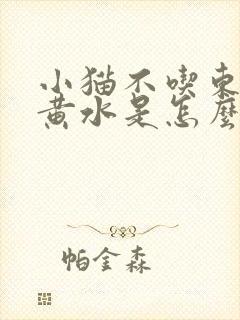 小猫不喫東
黄水是怎麼
帕金森